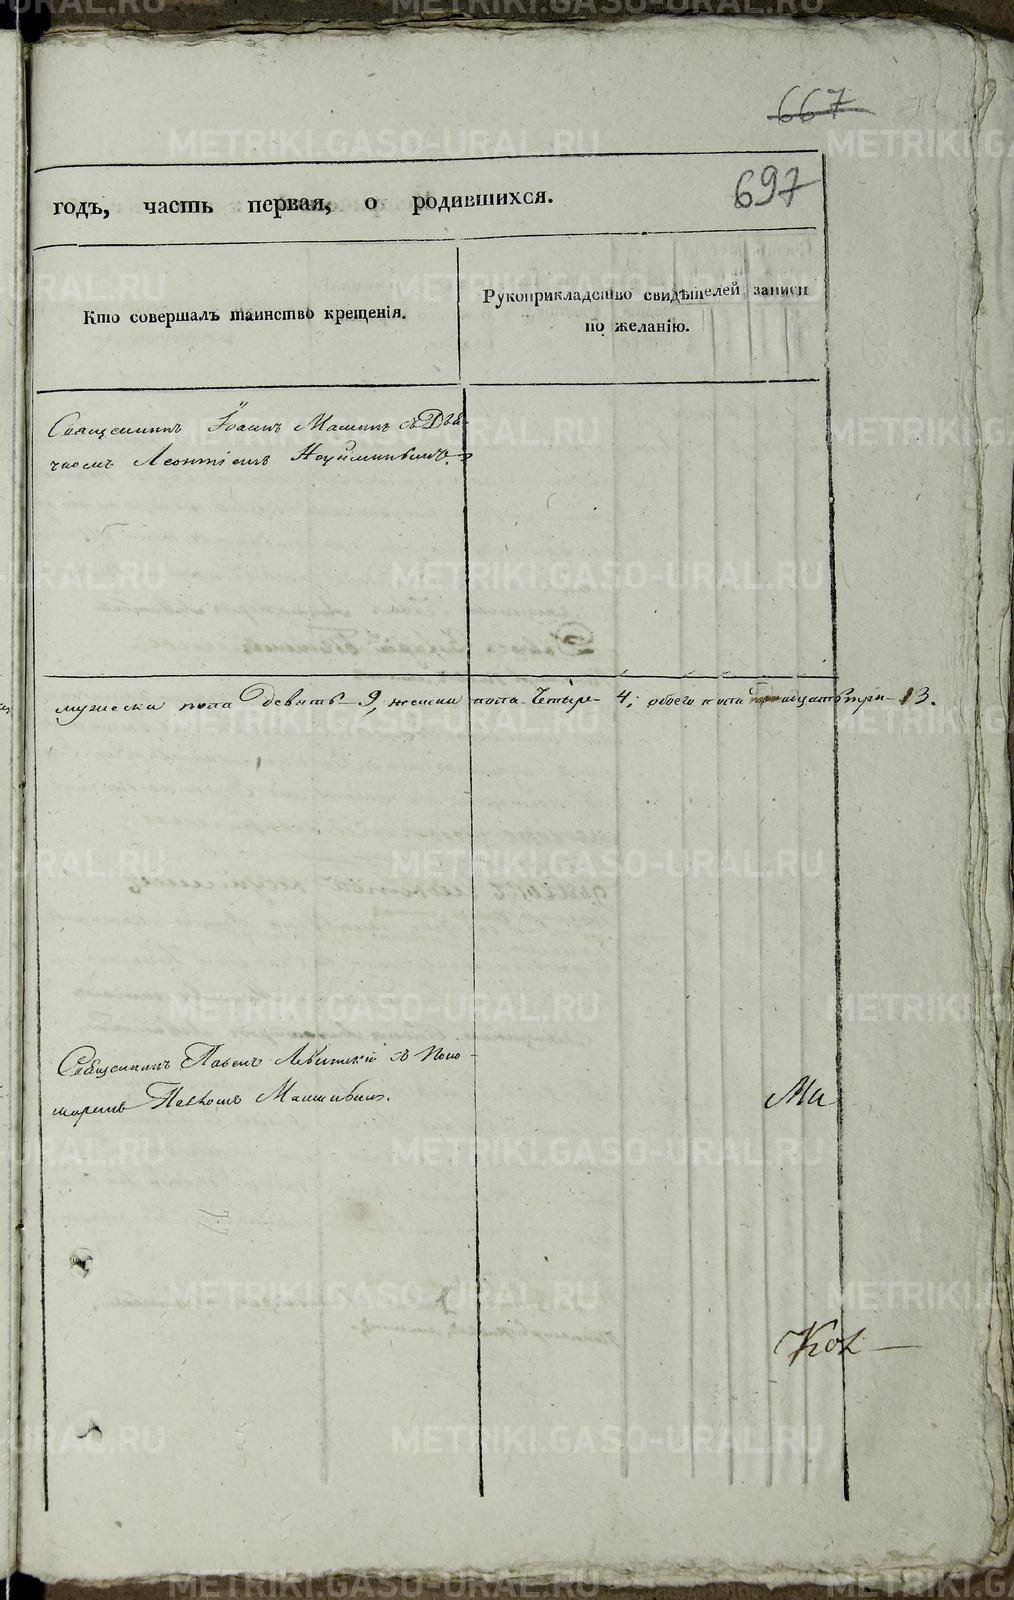 667
697
годъ, часть первая, о родившихся.
Кто совершалъ таинство крещенія.
Рукоприкладство свидѣтелей записи
по желанію.
Священникъ Іоаннъ съ Дья-
чкомъ Леонтіемъ
мужеска пола девять - 9, женска пола четыре - 4; обоего пола тринадцать 13.
Священникъ Павелъ Левитскій съ Поно-
маремъ Павломъ
Ма
Ков
METRIKI.GASO-URAL.RU